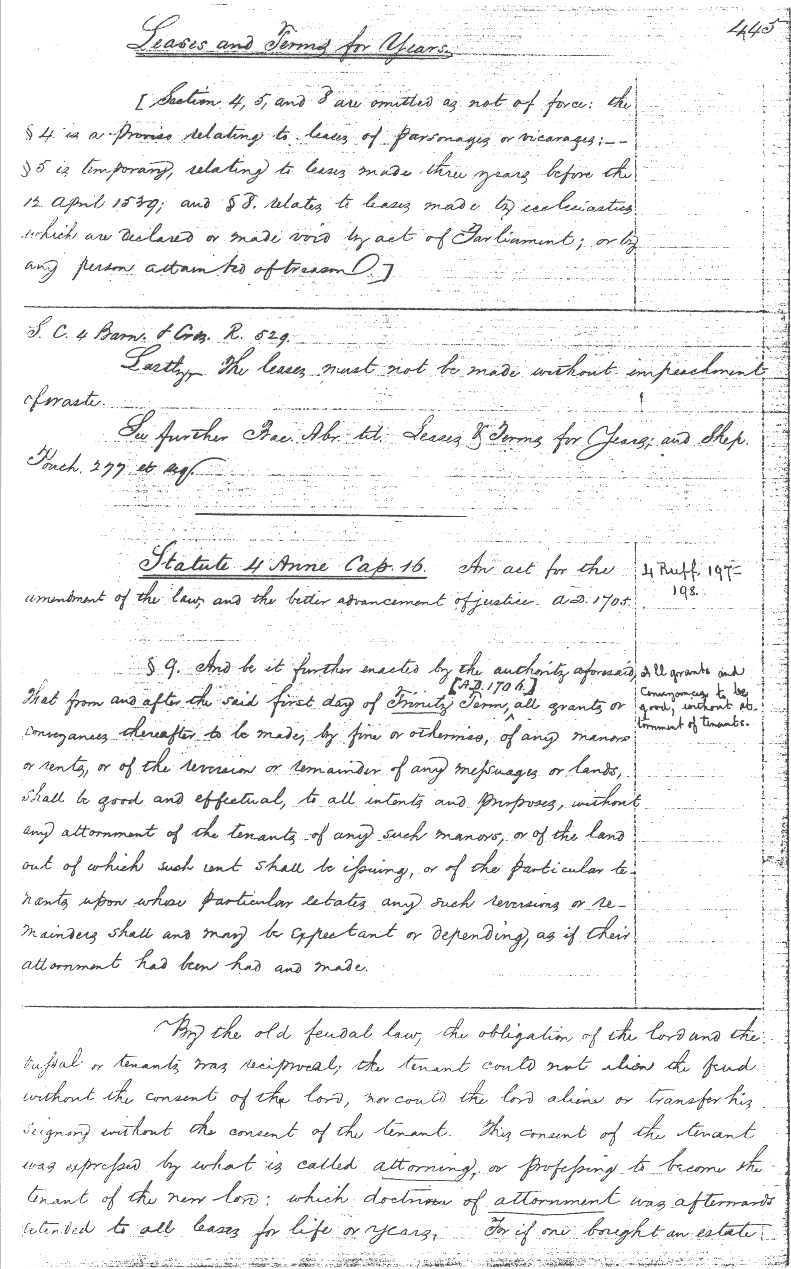 445
Leases and Terms for Years.
[Section 4, 5, and 8 are omitted as not of force: the
§ 4 is a proviso relating to leases of parsonages or vicarages;--
§ 5 is temporary, relating to leases made three years before the
12 April 1539; and § 8. relates to leases made by ecclesiastics
which are declared or made void by act of Parliament; or by
any person attainted of treason.]
S. C. 4 Barn. & Cres. R. 529.
Lastly, The leases must not be made without impeachment
of waste.
See further Bac. Abr. tit. Leases & Terms for Years; and Shep.
Touch. 277 et seq.
Statute 4 Anne Cap. 16. An act for the
amendment of the law, and the better advancement of justice. A.D. 1705.
4 Ruff. 197-
198.
§ 9. And be it further enacted by the authority aforesaid,
[A.D. 1706.]
That from and after the said first day of Trinity Term, all grants or
conveyances thereafter to be made, by fine or otherwise, of any manors
or rents, or of the reversion or remainder of any messuages or lands,
shall be good and effectual, to all intents and purposes, without
any attornment of the tenants of any such manors, or of the land
out of which such rent shall be issuing, or of the particular te-
nants upon whose particular estates any such reversions or re-
mainders shall and may be expectant or depending, as if their
attornment had been had and made.
All grants and
Conveyances to be
good, without at-
tornment of tenants.
By the old feudal law, the obligation of the lord and the
vassal or tenants was reciprocal; the tenant could not alien the feud
without the consent of the lord, nor could the lord aliene or transfer his
seignory without the consent of the tenant. This consent of the tenant
was expressed by what is called attorning, or professing to become the
tenant of the new lord: which doctrine of attornment was afterwards
extended to all leases for life or years. For if one bought an estate